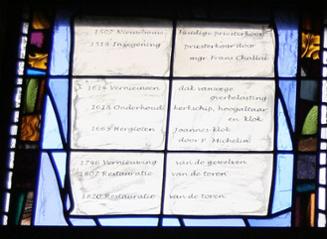 1507 Nieuwbouw huidige priesterkoor
1513 Inzegening priesterkoor door
mgr. Frans Chaillet
1614 Vernieuwen dak vanwege
overbelasting
1618 Onderhoud kerkschip, hoogaltaar
en klok
1665 Hergieten Joannes-klok
door F. Michelin
1746 Vernieuwing van de gewelven
1807 Restauratie van de toren
1820 Restauratie van de toren